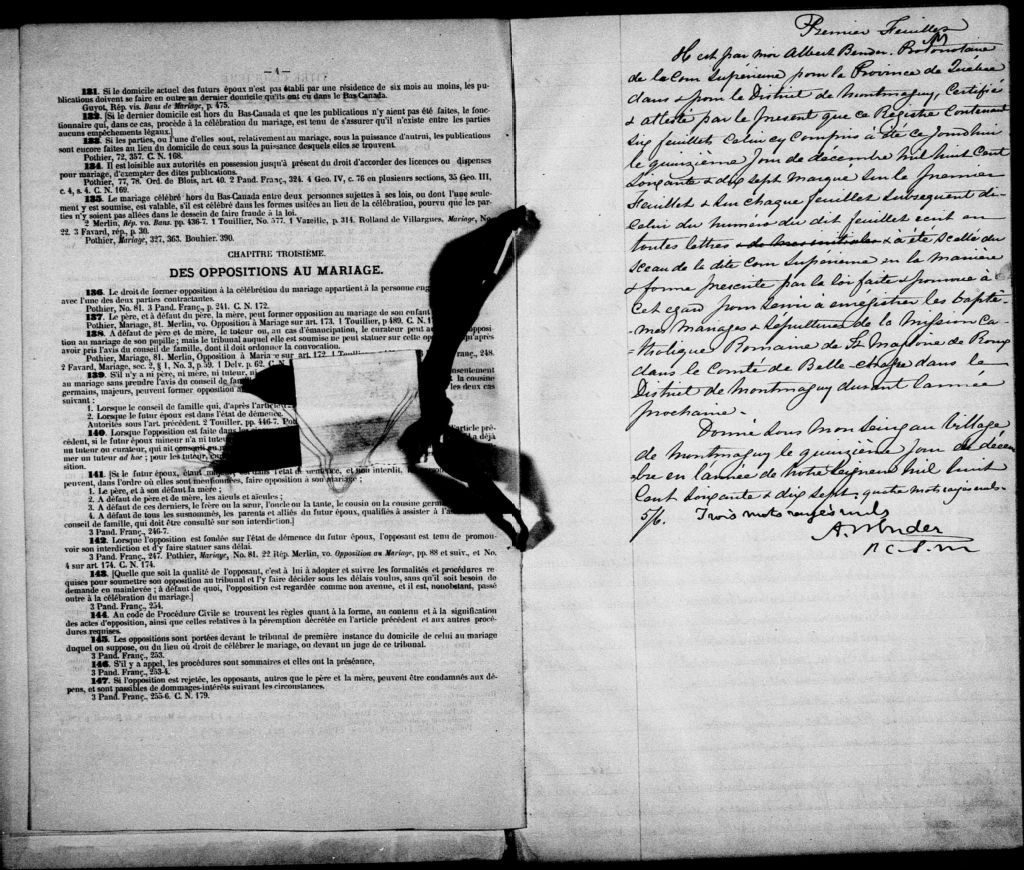 — 4 —
131. Si le domicile actuel des futurs époux n'est pas établi par une résidence de six mois au moins, les pu-
blications doivent se faire en outre au dernier domicile qu'ils ont eu dans le Bas-Canada.
Guyot, Rép. vis. Bans de Mariage, p. 475.
132. [Si le dernier domicile est hors du Bas-Canada et que les publications n'y aient pas été faites, le fonc-
tionnaire qui, dans ce cas, procède à la célébration du mariage, est tenu de s'assurer qu'il n'existe entre les parties
aucuns empêchements légaux.]
133. Si les parties, ou l'une d'elles sont, relativement au mariage, sous la puissance d'autrui, les publications
sont encore faites au lieu du domicile de ceux sous la puissance desquels elles se trouvent.
Pothier, 72, 357. C. N. 168.
134. Il est loisible aux autorités en possession jusqu'à présent du droit d'accorder des licences ou dispenses
pour mariage, d'exempter des dites publications.
Pothier, 77, 78. Ord. de Blois, art. 40. 2 Pand. Franç., 324. 4 Geo. IV, c. 76 en plusieurs sections, 35 Geo. III,
c. 4, s. 4. C. N. 169.
135. Le mariage célébré hors du Bas-Canada entre deux personnes sujettes à ses lois, ou dont l'une seule-
ment y est soumise, est valable, s'il est célébré dans les formes usitées au lieu de la célébration, pourvu que les par-
ties n'y soient pas allées dans le dessein de faire fraude à la loi.
2 Merlin, Rép. vo. Bans. pp. 436-7. 1 Touillier, No. 577. 1 Vazeille, p. 314. Rolland de Villargues, Mariage, No.
22. 3 Favard, rép., p. 30.
Pothier, Mariage, 327, 363. Bouhier. 390.
CHAPITRE TROISIÈME.
DES OPPOSITIONS AU MARIAGE.
136. Le droit de former opposition à la célébrétion du mariage appartient à la personne eng
avec l'une des deux parties contractantes.
Pothier, No. 81. 3 Pand. Franç., p. 241. C. N. 172.
137. Le père, et à défaut du père, la mère, peut former opposition au mariage de son enfant
Pothier, Mariage, 81. Merlin, vo. Opposition à Mariage sur art. 173. 1 Touillier, p 489. C. N. 1
138. A défaut de père et de mère, le tuteur ou, au cas d'émancipation, le curateur peut au opposi-
tion au mariage de son pupille; mais le tribunal auquel elle est soumise ne peut statuer sur cette op qu'après
avoir pris l'avis du conseil de famille, dont il doit ordonner la convocation.
Pothier, Mariage, 81. Merlin, Opposition à Mariage sur art. 172. 1 Touillier ranç., 248.
2 Favard, Mariage, sec. 2, § 1, No. 3, p.59. 1 Delv. p. 62. C. N.
139. S'il n'y a ni père, ni mère, ni tuteur, ni nsentement
au mariage sans prendre l'avis du conseil de fam la cousine
germains, majeurs, peuvent former opposition a les deux cas
suivant :
1. Lorsque le conseil de famille qui, d'après l'article
2. Lorsque le futur époux est dans l'état de démence.
Autorités sous l'art. précédent. 2 Touiller, pp. 446-7. Pot
140. Lorsque l'opposition est faite dans les article pré-
cédent, si le futur époux mineur n'a ni tuteur a déjà
un tuteur ou curateur, qui ait consenti au m
mer un tuteur ad hoc; pour les tuteur, cu
sition.
141. [Si le futur époux, étant dans l'état de démence, et non interdit,
peuvent, dans l'ordre où elles sont mentionnées, faire opposition à son mariage ;
1. Le père, et à son défaut la mère ;
2. A défaut de père et de mère, les aïeuls et aïeules ;
3. A défaut de ces derniers, le frère ou la sœur, l'oncle ou la tante, le cousin ou la cousine germ
4. A défaut de tous les susnommés, les parents et alliés du futur époux, qualifiés à assister à l'a
conseil de famille, qui doit être consulté sur son interdiction.]
3 Pand. Franç., 246-7.
142. Lorsque l'opposition est fondée sur l'état de démence du futur époux, l'opposant est tenu de promou-
voir son interdiction et d'y faire statuer sans délai.
3 Pand. Franç., 247. Pothier, Mariage, No. 81. 22 Rép. Merlin, vo. Opposition au Mariage, pp. 88 et suiv., et No.
4 sur art. 174. C. N. 174.
143. [Quelle que soit la qualité de l'opposant, c'est à lui à adopter et suivre les formalités et procédures re-
quises pour soumettre son opposition au tribunal et l'y faire décider sous les délais voulus, sans qu'il soit besoin de
demande en mainlevée ; à défaut de quoi, l'opposition est regardée comme non avenue, et il est, nonobstant, passé
outre à la célébration du mariage.]
3 Pand. Franç., 254.
144. Au code de Procédure Civile se trouvent les règles quant à la forme, au contenu et à la signification
des actes d'opposition, ainsi que celles relatives à la péremption décrétée en l'article précédent et aux autres procé-
dures requises.
145. Les oppositions sont portées devant le tribunal de première instance du domicile de celui au mariage
duquel on suppose, ou du lieu où droit de célébrer le mariage, ou devant un juge de ce tribunal.
3 Pand. Franç., 253.
146. S'il y a appel, les procédures sont sommaires et elles ont la préséance,
3 Pand. Franç., 253-4.
147. Si l'opposition est rejetée, les opposants, autres que le père et la mère, peuvent être condamnés aux dé-
pens, et sont passibles de dommages-intérêts suivant les circonstances.
3 Pand. Franç., 255-6. C. N. 179.
Premier Feuillet
Il est par moi Albert Bender. Protonotaire
de la Cour Supérieure pour la Province de Québec
dans & pour le District de Montmagny, Certifié
& attesté par le présent que ce Registre Contenant
Six feuillets Celui cy Compris a été ce Jourd'hui
le quinzième Jour de décembre Mil huit Cent
Soixante & dix sept Marqué sur le premier
Feuillet & sur chaque feuillet subsequent de
Celui du numéro du dit feuillet écrit en
toutes lettres & de mes initiales & a été scellé du
Sceau de la dite Cour Supérieure en la manière
& forme prescrite par la loi faite & pourvue à
Cet égard pour servir à enregistrer les Baptê-
mes Mariages & Sépultures de la Mission Ca-
tholique Romaine de St Magloire de Roux
dans le Comté de Belle-chasse dans le
District de Montmagny durant l'année
prochaine.
Donné sous mon seing au Village
de Montmagny le quinzième jour de décem
bre en l'année de Notre Seigneur Mil huit
Cent Soixante & dix sept. quatre mots rayés nuls.
Trois mots rayés nuls
A. Bender
P. C. S. M